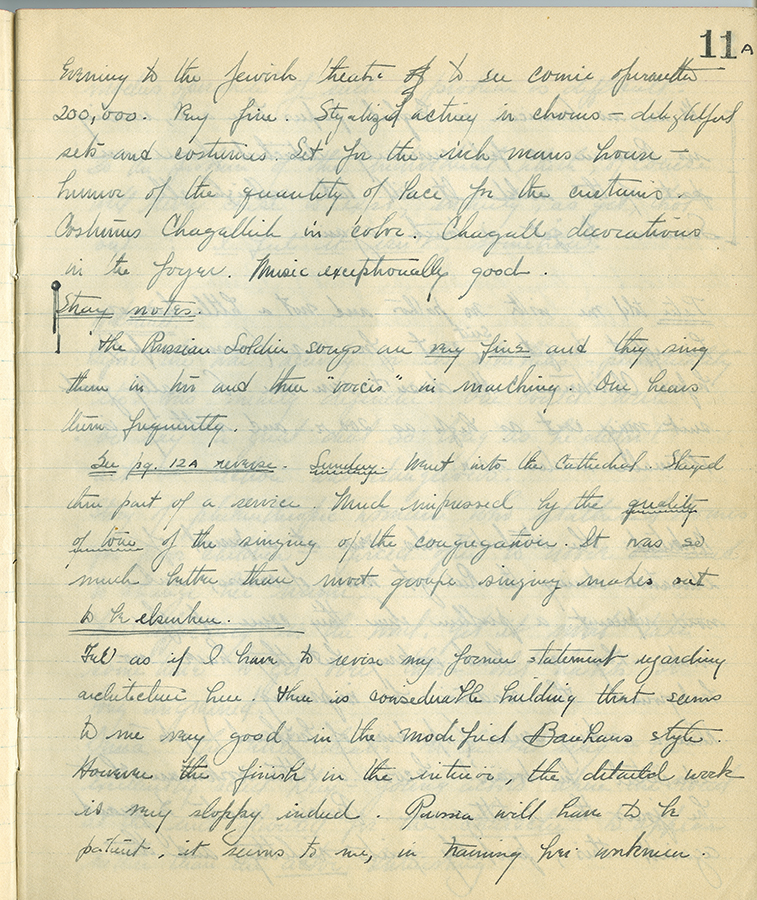 11A
Evening to the Jewish theatre to see comic operautta
200,000. Very fine. Stylalized acting in chorus – delightful
sets and costumes. Set for the rich mans house –
humor of the quantity of lace for the curtains.
Costumes Chagallish in color. Chagall decorations
in the foyer. Music exceptionally good.
Stray notes.
The Russian Soldier songs are very fine and they sing
them in two and three "voices" in marching. One hears
them frequently.
See pg. 12A reverse. Sunday. Went into the Cathedral. Stayed
thru part of a service. Much impressed by the quality
of tone of the singing of the congregation. It was so
much better than most groupe singing makes out
to be elsewhere.
Feel as if I have to revise my former statement regarding
architecture here. There is considerable building that seems
to me very good in the modified Bauhaus style.
However the finish in the interior, the detailed work
is very sloppy indeed. Russia will have to be
patient, it seems to me, in training her workmen.